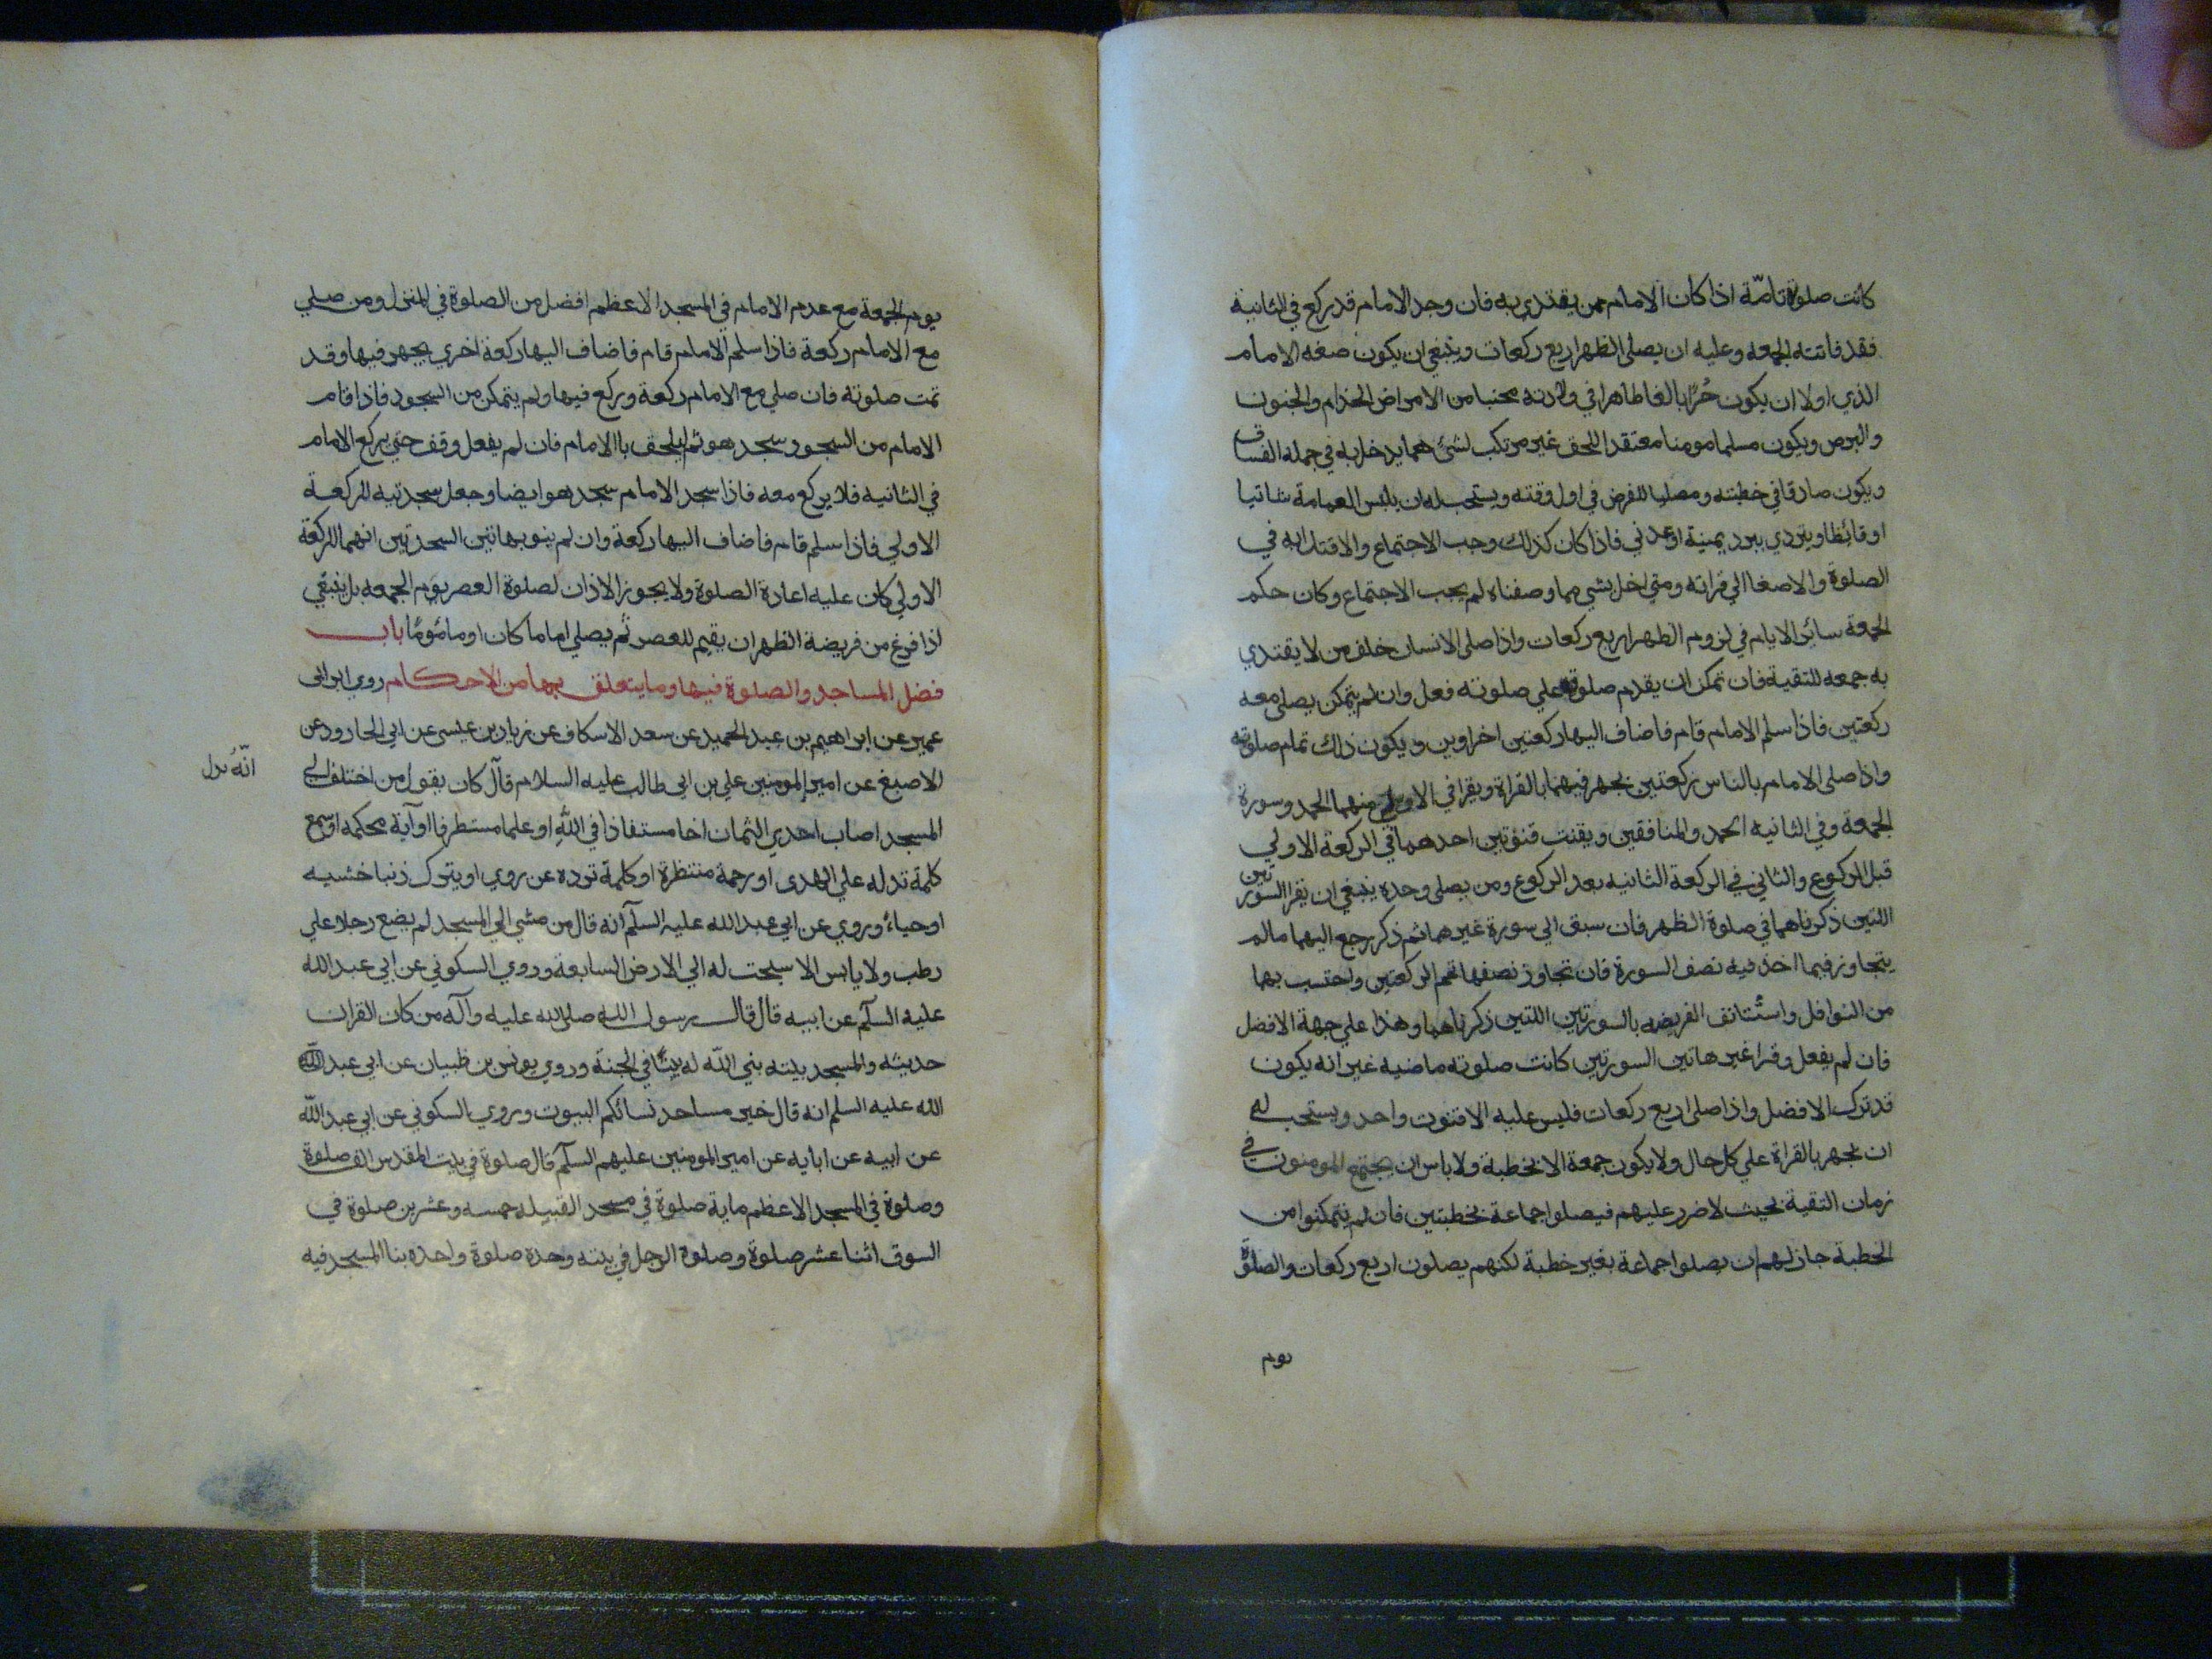 كانت صلوته تامّة اذا كان الامام ممن يقتدي به فان وجد الامام قد ركع في الثانية
فقد فاتته الجمعه وعليه ان يصلي الظهر اربع ركعات وينبغي ان يكون صفه الامام
الذي اولا ان يكون حُرًا بالغا طاهرا في ولادته مجنبا من الامراض الجذام والجنون
والبرص ويكون مسلما مومنا معتقدا للحق غير مرتكب لشئ مما يدخل به في جملة الفساق
ويكون صادقا في خطبته ومصليا للفرض في اول وقته ويستحب له ان يلبس العمامة شاتيا
او قائظا ويتردي ببرد يمنية او عدني فاذا كان كذلك وجب الاجتماع والاقتدا به في
الصلوة والاصغا الي قراته ومتي اخل بشي مما وصفناه لم يجب الاجتماع وكان حكم
الجمعة سائر الايام في لزوم الظهر اربع ركعات واذا صلي الانسان خلف من لا يقتدي
به جمعه للتقية فان تمكن ان يقدم صلوته علي صلوته فعل وان لم يتمكن يصلي معه
ركعتين فاذا سلم الامام قام فاضاف اليها ركعتين اخراوين ويكون ذلك تمام صلوته
واذا صلي الامام بالناس ركعتين يجهر فيهما بالقراة ويقرا في الاولي منهما الحمد وسورة
الجمعة وفي الثانيه الحمد والمنافقين ويقنت قنوتين احدهما في الركعة الاولي
قبل الركوع والثاني في الركعة الثانيه بعد الركوع ومن يصلي وحده ينبغي ان يقرا السورتين
اللتين ذكرناهما في صلوة الظهر فان سبق الي سورة غيرهما ثم ذكر رجع اليهما مالم
يتجاوز فيما اخذ فيه نصف السورة فان تجاوز نصفها تمم الركعتين واحتسب بهما
من النوافل واستٔانف الفريضه بالسورتين اللتين ذكرناهما وهذا علي جهة الافضل
فان لم يفعل وقرا غير هاتين السورتين كانت صلوته ماضيه غير انه يكون
قد ترك الافضل واذا صلي اربع ركعات فليس عليه الا قنوت واحد ويستحب له
ان يجهر بالقراة علي كل حال ولا يكون جمعة الا بخطبة ولا باس ان يجتمع المومنون في
زمان التقية بحيث لا ضرر عليهم فيصلوا جماعة بخطبتين فان لم يتمكنوا من
الخطبة جاز لهم ان يصلوا جماعة بغير خطبة لكنهم يصلون اربع ركعات والصلوة
يوم
يوم الجمعة مع عدم الامام في المسجد الاعظم افضل من الصلوة في المنزل ومن صلي
مع الامام ركعة فاذا سلم الامام قام فاضاف اليها ركعة اخري يجهر فيها وقد
تمت صلوته فان صلي مع الامام ركعة وركع فيها ولم يتمكن من السجود فاذا قام
الامام من السجود سجد هو ثم ليلحق باالامام فان لم يفعل وقف حتي يركع الامام
في الثانيه فلا يركع معه فاذا سجد الامام سجد هو ايضا وجعل سجدتيه للركعة
الاولي فاذا سلم قام فاضاف اليها ركعة وان لم ينو بهاتين السجدتين انهما للركعة
الاولي كان عليه اعادة الصلوة ولا يجوز الاذان لصلوة العصر يوم الجمعه بل ينبغي
اذا فرغ من فريضة الظهر ان يقيم للعصر ثم يصلي اماما كان او مامومًا باب
فضل المساجد والصلوة فيها وما يتعلق بها من الاحكام روي ابن ابي
عمير عن ابراهيم بن عبد الحميد عن سعد الاسكاف عن زياد بن عيسي عن ابي الجارود عن
الاصبغ عن امير المومنين علي بن ابي طالب عليه السلام قال كان يقول من اختلف الي
انّه بدل
المسجد اصاب احدي الثمان اخا مستفاذا في اللهِ او علما مستطرفا او آية محكمه او سمع
كلمة تدله علي الهدي او رحمة منتظرة او كلمة ترده عن ردي او يترك ذنبا خشيه
او حياءً وروي عن ابي عبد الله عليه السلم انه قال من مشي الي المسجد لم يضع رجلا علي
رطب ولا يابس الا سبحت له الي الارض السابعة وروي السكوني عن ابي عبد الله
عليه السلم عن ابيه قال قال رسول الله صلي الله عليه وآله من كان القران
حديثه والمسجد بيته بني اللّه له بيتًا في الجنة وروي يونس بن ظبيان عن ابي عبد اللّه
اللّه عليه السلم انه قال خير مساجد نسائكم البيوت وروي السكوني عن ابي عبد اللّه
عن ابيه عن ابايه عن امير المومنين عليهم السلم قال صلوة في بيت المقدس الف صلوة
وصلوة في المسجد الاعظم ماية صلوة في مسجد القبيله خمسه وعشرين صلوة في
السوق اثنا عشر صلوة وصلوة الرجل في بيته وحدة صلوة واحده بنا المسجد فيه